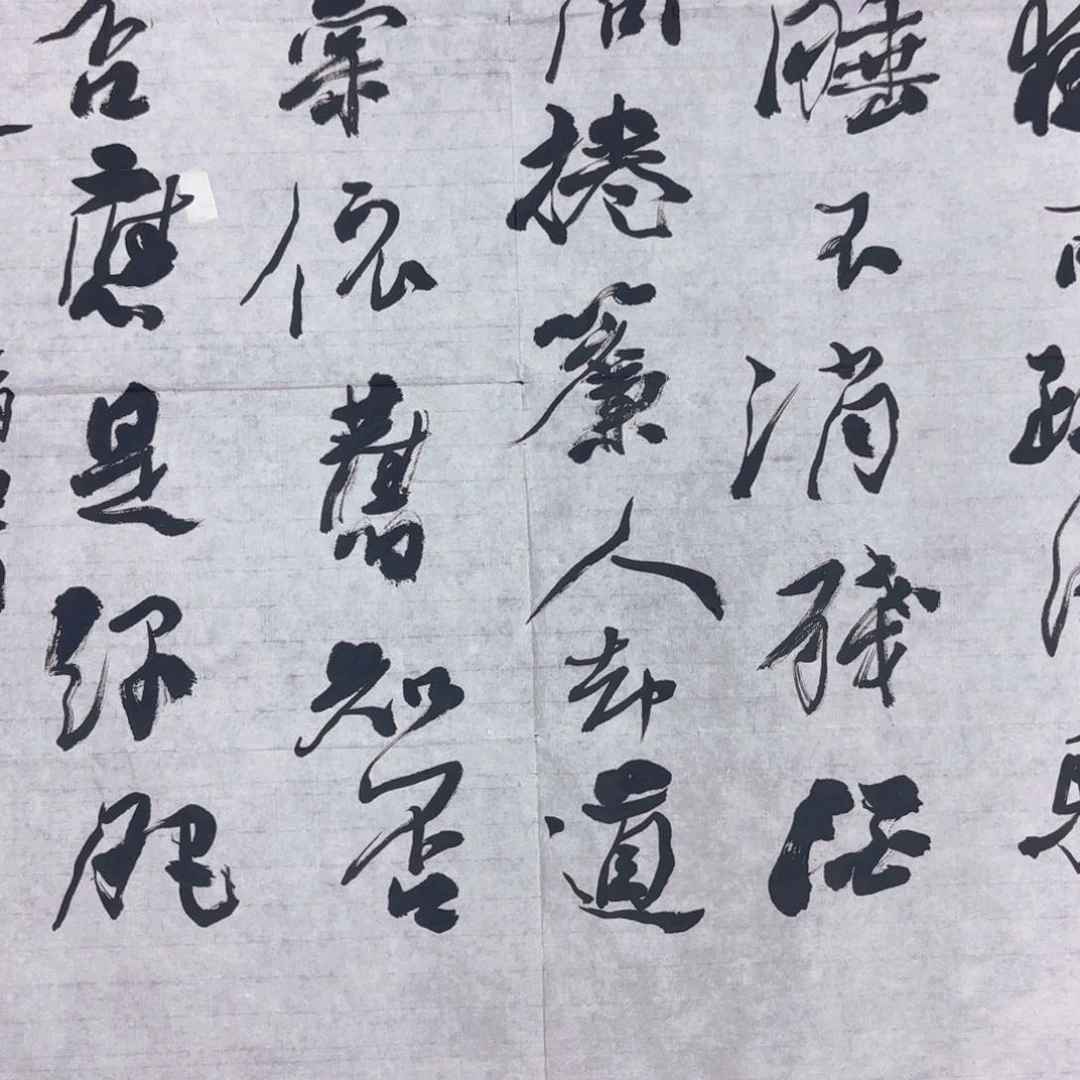 睡不消殘酒
問捲簾人却道
棠依舊知否
否應是綠肥